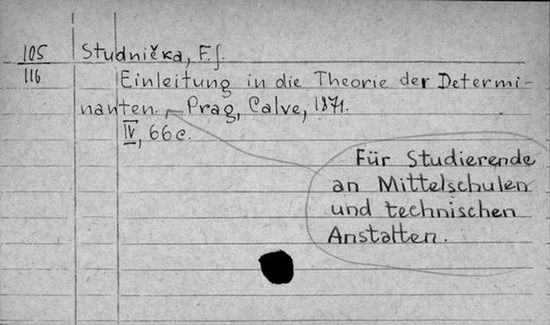 105
116
Studnička, F.J.
Einleitung in die Theorie der Determi-
nanten. Prag, Calve, 1871.
IV, 66 c.
Für Studierende
an Mittelschulen
und technischen
Anstalten.